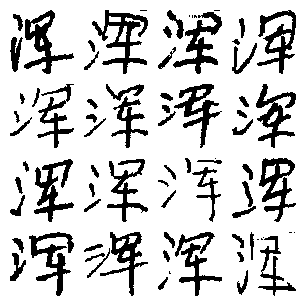 浑浑浑浑
浑浑浑浑
浑浑浑浑
浑浑浑浑